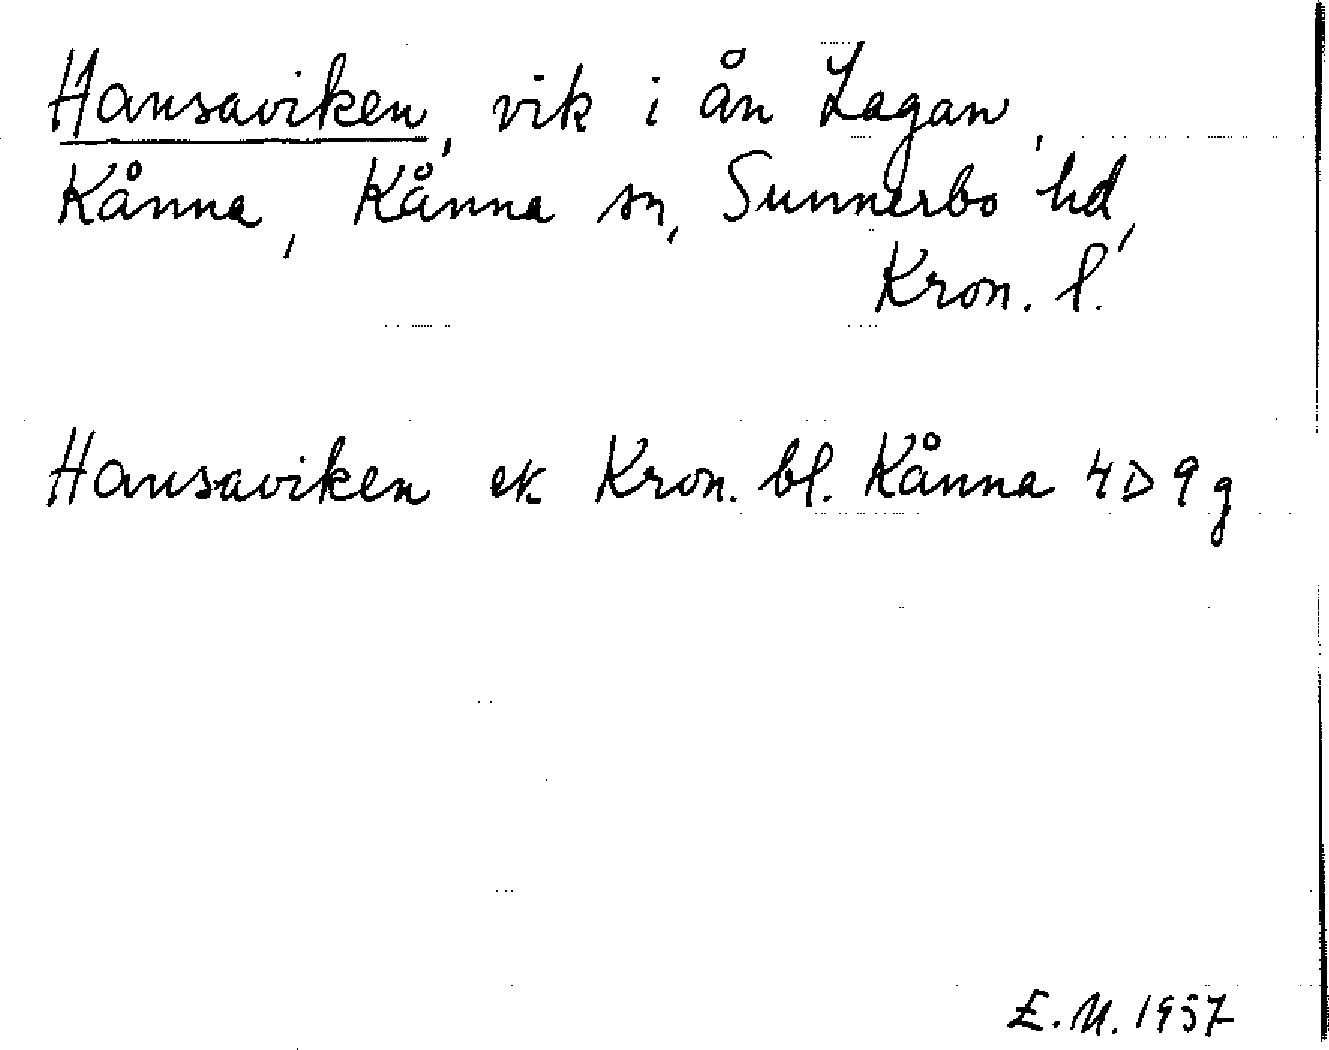 Hansaviken, vik i ån Lagan,
Kånna, Kånna sn, Sunnerbo hd,
Kron. l.
Hansaviken ek Kron. bl. Kånna 4D9g
E.M. 1957